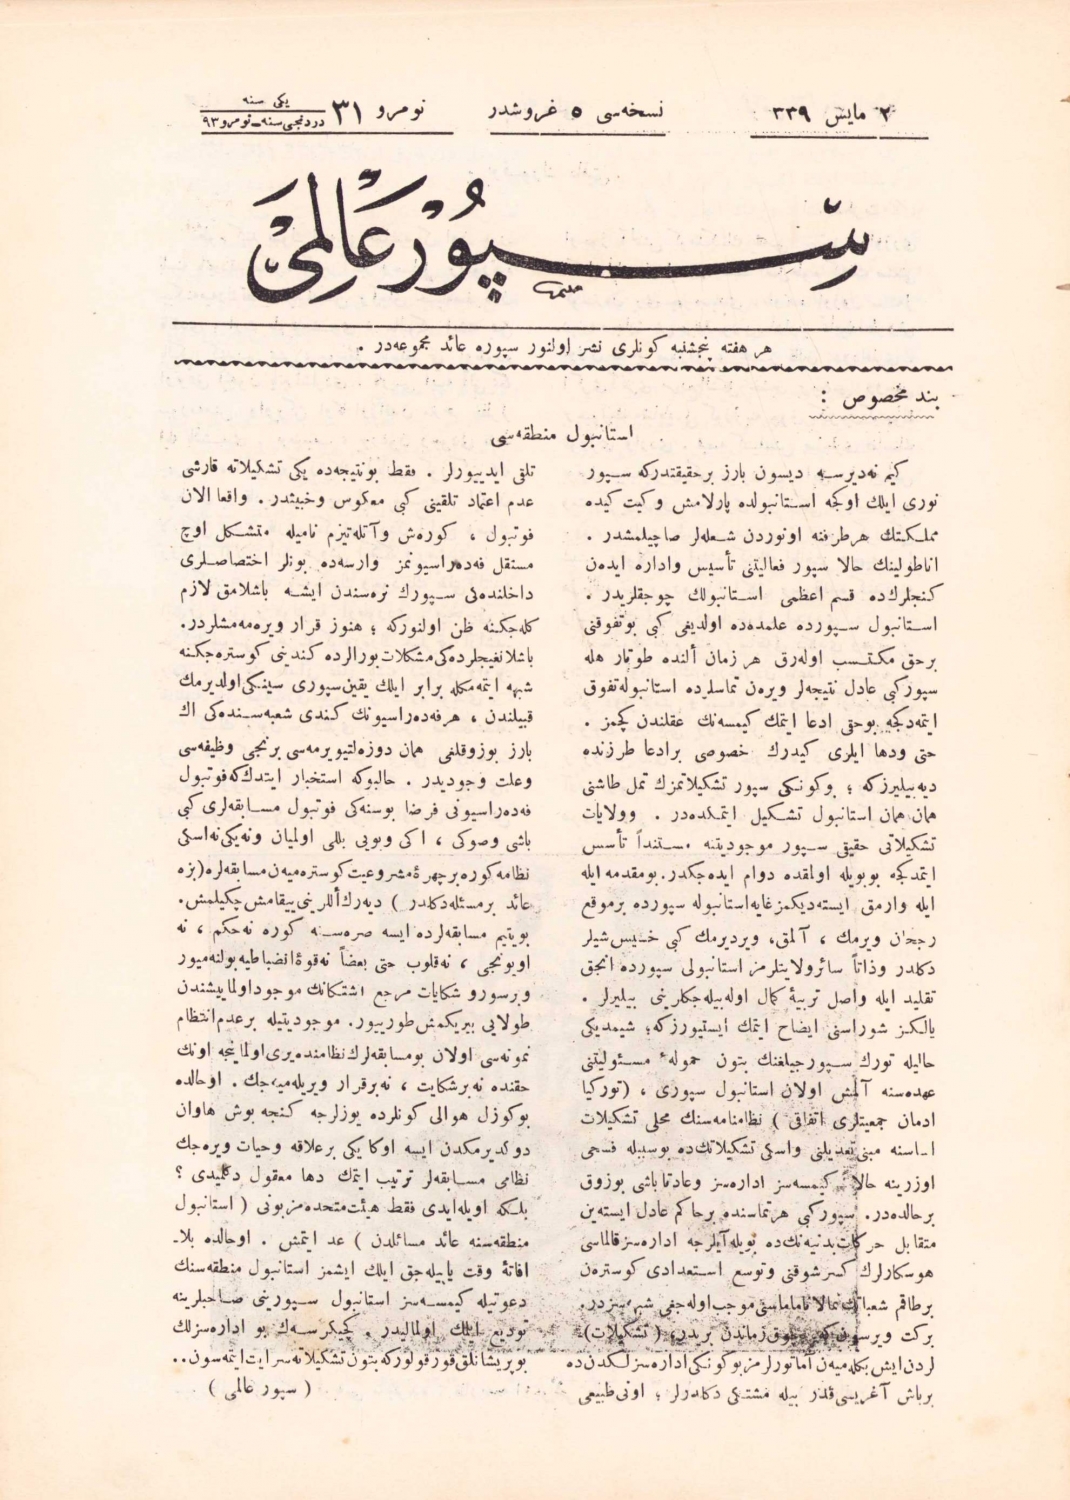 ٢ مايس ٣٣٩
نسخه‌سى ٥ غروشدر
نومرو ٣١
يكى سنه
دردنجى سنه ـ نومرو ٩٣
سپور عالمى
هر هفته پنجشنبه كونلرى نشر اولنور سپوره عائد مجموعه‌در .
بند مخصوص :
استانبول منطقه‌سى
كيم نه‌ديرسه ديسون بارز برحقيقتدركه سپور
نورى ايلك اوكجه استانبولده پارلامش و كيت كيده
مملكتك هرطرفنه اونوردن شعله‌لر صاچيلمشدر .
اناطولينك حالا سپور فعاليتنى تأسيس واداره ايده‌ن
كنجلرك‌ده قسم اعظمى استانبولك چوجقلريدر .
استانبول سپورده علمده‌ده اولديغى كبى بوتفوقنى
برحق مكتسب اوله‌رق هر زمان ألنده طوتار هله
سپوركبى عادل نتيجه‌لر ويره‌ن تماسلرده استانبوله تفوق
ايتمه‌دكجه بوحقى ادعا ايتمك كيمسه‌نك عقلندن كچمز .
حتى ودها ايلرى كيدرك خصوصى برادعا طرزنده
ديه‌بيليرزكه ؛ بوكونكى سپور تشكيلاتمزك تمل طاشنى
همان همان استانبول تشكيل ايتمكده‌در . وولايات
تشكيلاتى حقيقى سپور موجوديتنه مستنداً تأسس
ايتمدكجه بوبويله اولمقده دوام ايده‌جكدر. بومقدمه ايله
ايله وارمق ايسته‌ديكمز غايه استانبوله سپورده برموقع
رجحان ويرمك ، آلمق، ويرديرمك كبى خسيس شيلر
دكلدر وذاتاً سائرولايتلرمز استانبولى سپورده انجق
تقليد ايله واصل تربيۀ كمال اوله‌بيله‌جكارينى بيليرلر .
يالكز شوراسنى ايضاح ايتمك ايستيورزكه؛ شيمديكى
حاليله تورك سپورجيلغنك بتون حموله‌ٔ مسئوليتنى
عهده‌سنه آلمش اولان استانبول سپورى ، (توركيا
ادمان جمعيتلرى اتفاقى ) نظامنامه‌سنك محلى تشكيلات
اساسنه مبنى تعديلنى واسكى تشكيلاتك‌ده بوسبيله فسحى
اوزرينه حالا كيمسه‌سز اداره‌سز وعادتا باشى بوزوق
برحالده‌در. سپوركبى هرتماسنده برحاكم عادل ايسته‌ين
متقابل حركات بدنيه‌نك‌ده بويله آيلرجه اداره‌سز قالماسى
هوسكارلرك كسر شوقنى وتوسع استعدادى كوسترن
برطاقم شعباتك موجب اوله‌جغى شبهه‌سزدر.
بركت ويرسون كه زماندن بريدر، ( تشكيلات )
لردن ايش بكله‌ميه‌ن آماتورلرمز بوكونكى اداره‌سزلكدن ده
برباش آغريسى قدر بيله مشتكى دكلدرلر ؛ اونى طبيعى
تلقى ايدييورلر . فقط بونتيجه‌ده يكى تشكيلاته قارشى
عدم اعتماد تلقينى كبى معكوس وخبيثدر . واقعا الان
فوتبول ، كوره‌ش وآتله‌تيزم ناميله متشكل اوچ
مستقل فه‌ده‌راسيونمز وارسه‌ده بونلر اختصاصلرى
داخلنده‌كى سپورك نره‌سندن ايشه باشلامق لازم
كله‌جكنه ظن اولنوركه ؛ هنوز قرار ويره‌مه‌مشلردر.
باشلانغيجلرده‌كى مشكلات بورالرده كندينى كوستره‌جكنه
شبهه ايتمه‌مكله برابر ايلك يقين سپورى سينكى اولديرمك
قبيلندن ، هرفه‌ده‌راسيونك كندى شعبه‌سنده‌كى اك
بارز بوزوقلغى همان دوزه‌لتيويرمه‌سى برنجى وظيفه‌سى
وعلت وجوديدر . حالبوكه استخبار ايتدك‌كه فوتبول
فه‌ده‌راسيونى فرضا بوسنه‌كى فوتبول مسابقه‌لرى كبى
باشى وصوكى ، اكى وبويى بللى اولميان ونه‌يكى نه‌اسكى
نظامه كوره برچهرۀ مشروعيت كوستره‌ميه‌ن مسابقه‌لره(بزه
عائد برمسئله دكلدر ) ديه‌رك أللرينى ييقامش چكيلمش.
بويتيم مسابقه‌لرده ايسه صره‌سنه كوره نه‌حكم ، نه
اويونجى ، نه‌قلوب حتى بعضاً نه‌قوۀ انضباطيه بولنه‌ميور
وبرسورو شكايات مرجع اشتكانك موجود اولمايشندن
طولايى بيريكمش طورييور. موجوديتيله برعدم انتظام
نمونه‌سى اولان بومسابقه‌لرك نظامنده‌يرى اولماينجه اونك
حقنده نه‌برشكايت ، نه‌برقرار ويريله‌ميه‌جك . اوحالده
بوكوزل هوالى كونلرده يوزلرجه كنجه بوش هاوان
دوكديرمكدن ايسه اوكا يكى برعلاقه وحيات ويره‌جك
نظامى مسابقه‌لر ترتيب ايتمك دها معقول دكلميدى ؟
بلكه اويله‌ايدى فقط هيئت متحده مزبونى ( استانبول
منطقه‌سنه عائد مسائلدن ) عد ايتمش . اوحالده بلا-
افاتۀ وقت ياپيله‌جق ايلك ايشمز استانبول منطقه‌سنك
دعوتيله كيمسه‌سز استانبول سپورينى صاحبلرينه
توديع ايلك اولماليدر . كچيكرسه‌ك بو اداره‌سزلك
بوپريشانلق قورقولوركه بتون تشكيلاته سرايت ايتمه‌سون..
( سپور عالمى )